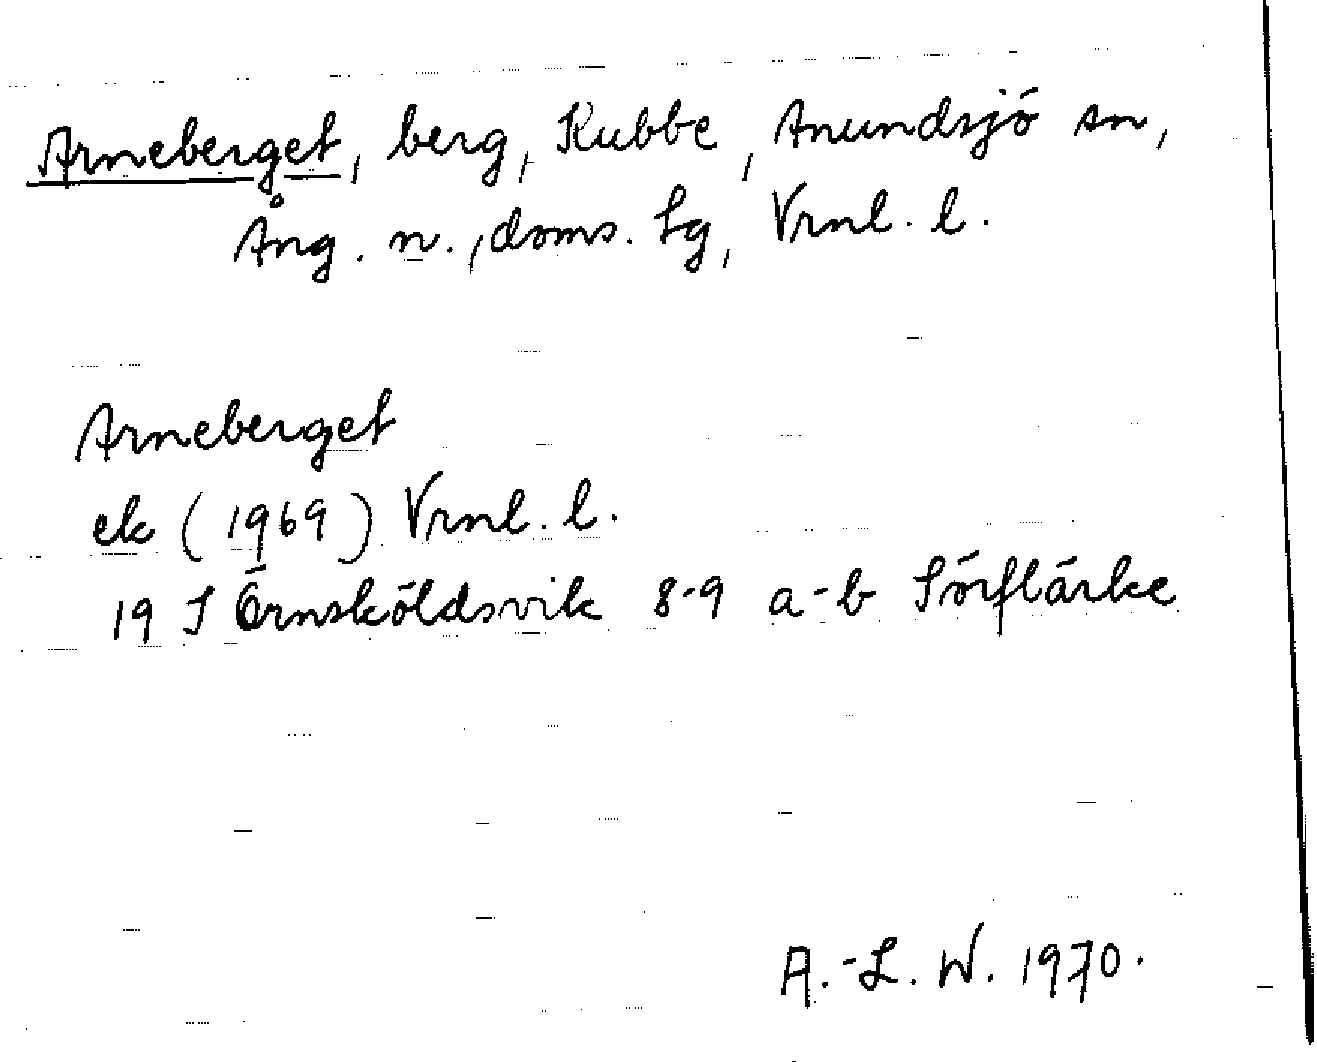 Arneberget, berg, Kubbe, Anundsjö sn,
Ång. n., doms. Lg, Vrnl. l.
Arneberget
ek (1969) Vrnl. l.
19 J Örnsköldsvik 8-9 a-b Sörflärke
A.-L. W. 1970.